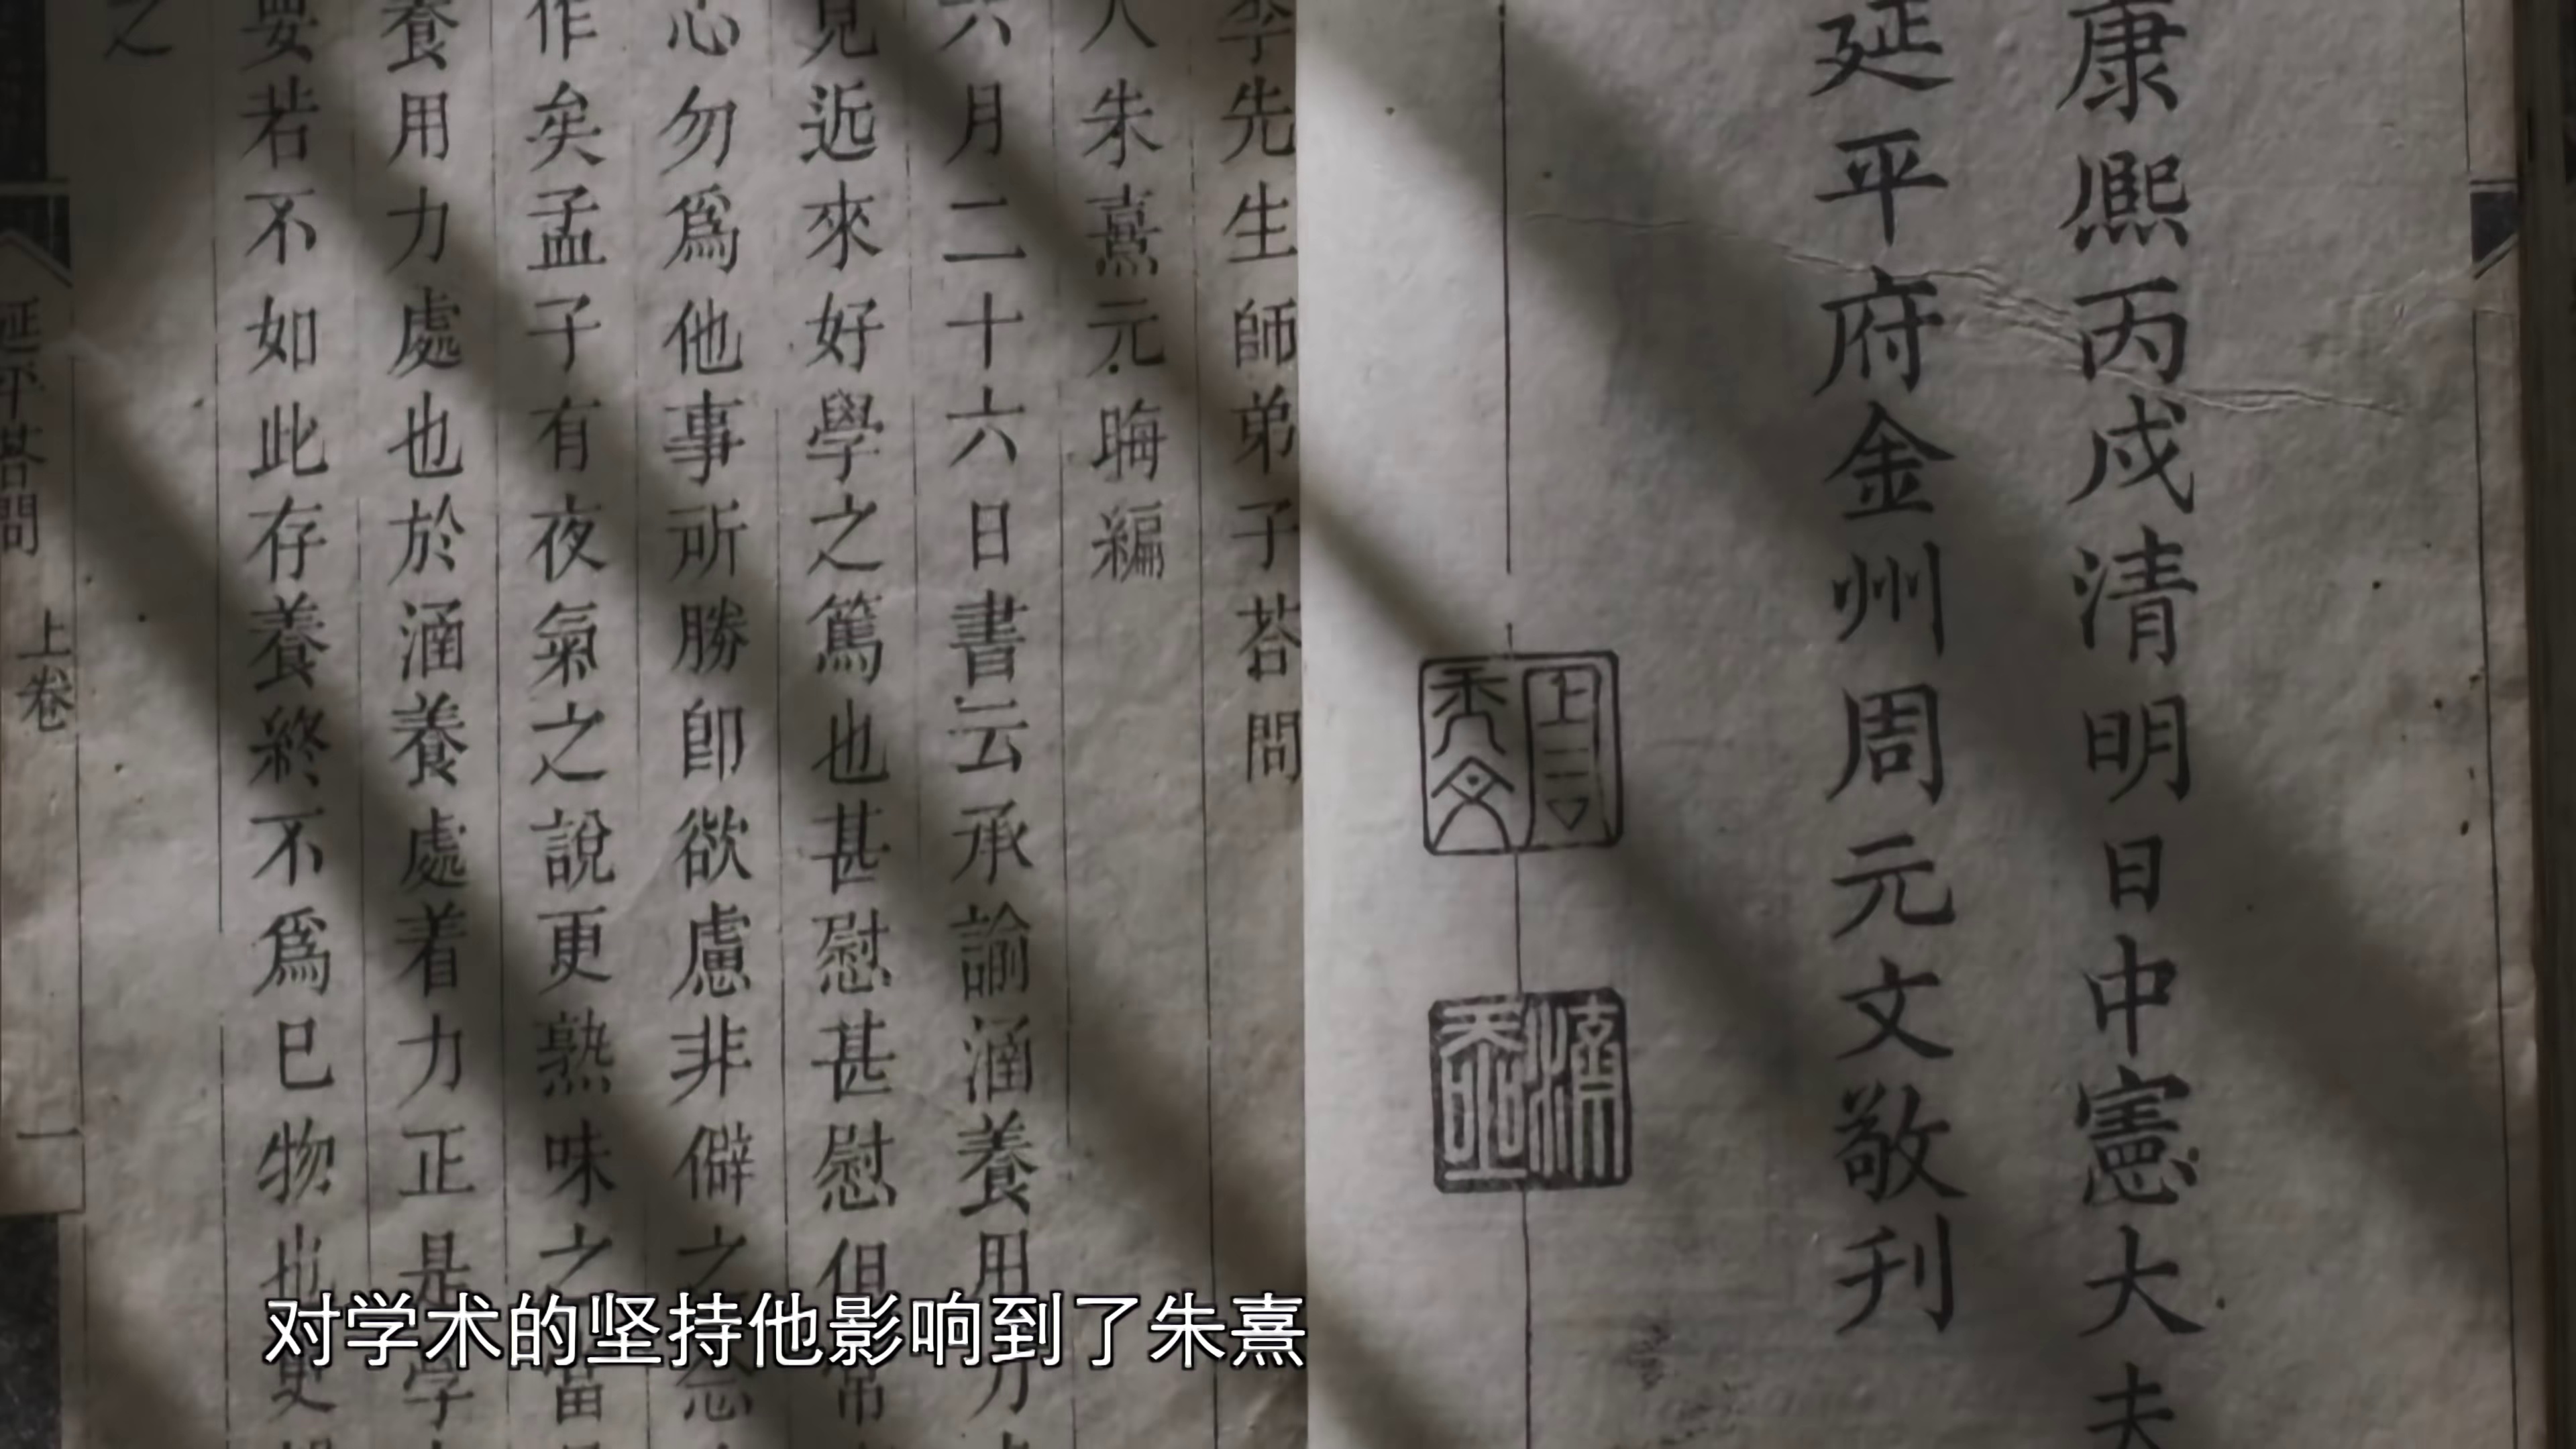 康熙丙戌清明日中憲大夫
延平府金州周元文敬刊
李先生師弟子荅問
人朱熹元晦編
六月二十六日書云承諭涵養用力
見近來好學之篤也甚慰甚慰但常
心勿爲他事所勝卽欲慮非僻之念
作矣孟子有夜氣之說更熟味之當
養用力處也於涵養處着力正是學
要若不如此存養終不爲已物也更
之
延平荅問 上卷 一
对学术的坚持他影响到了朱熹